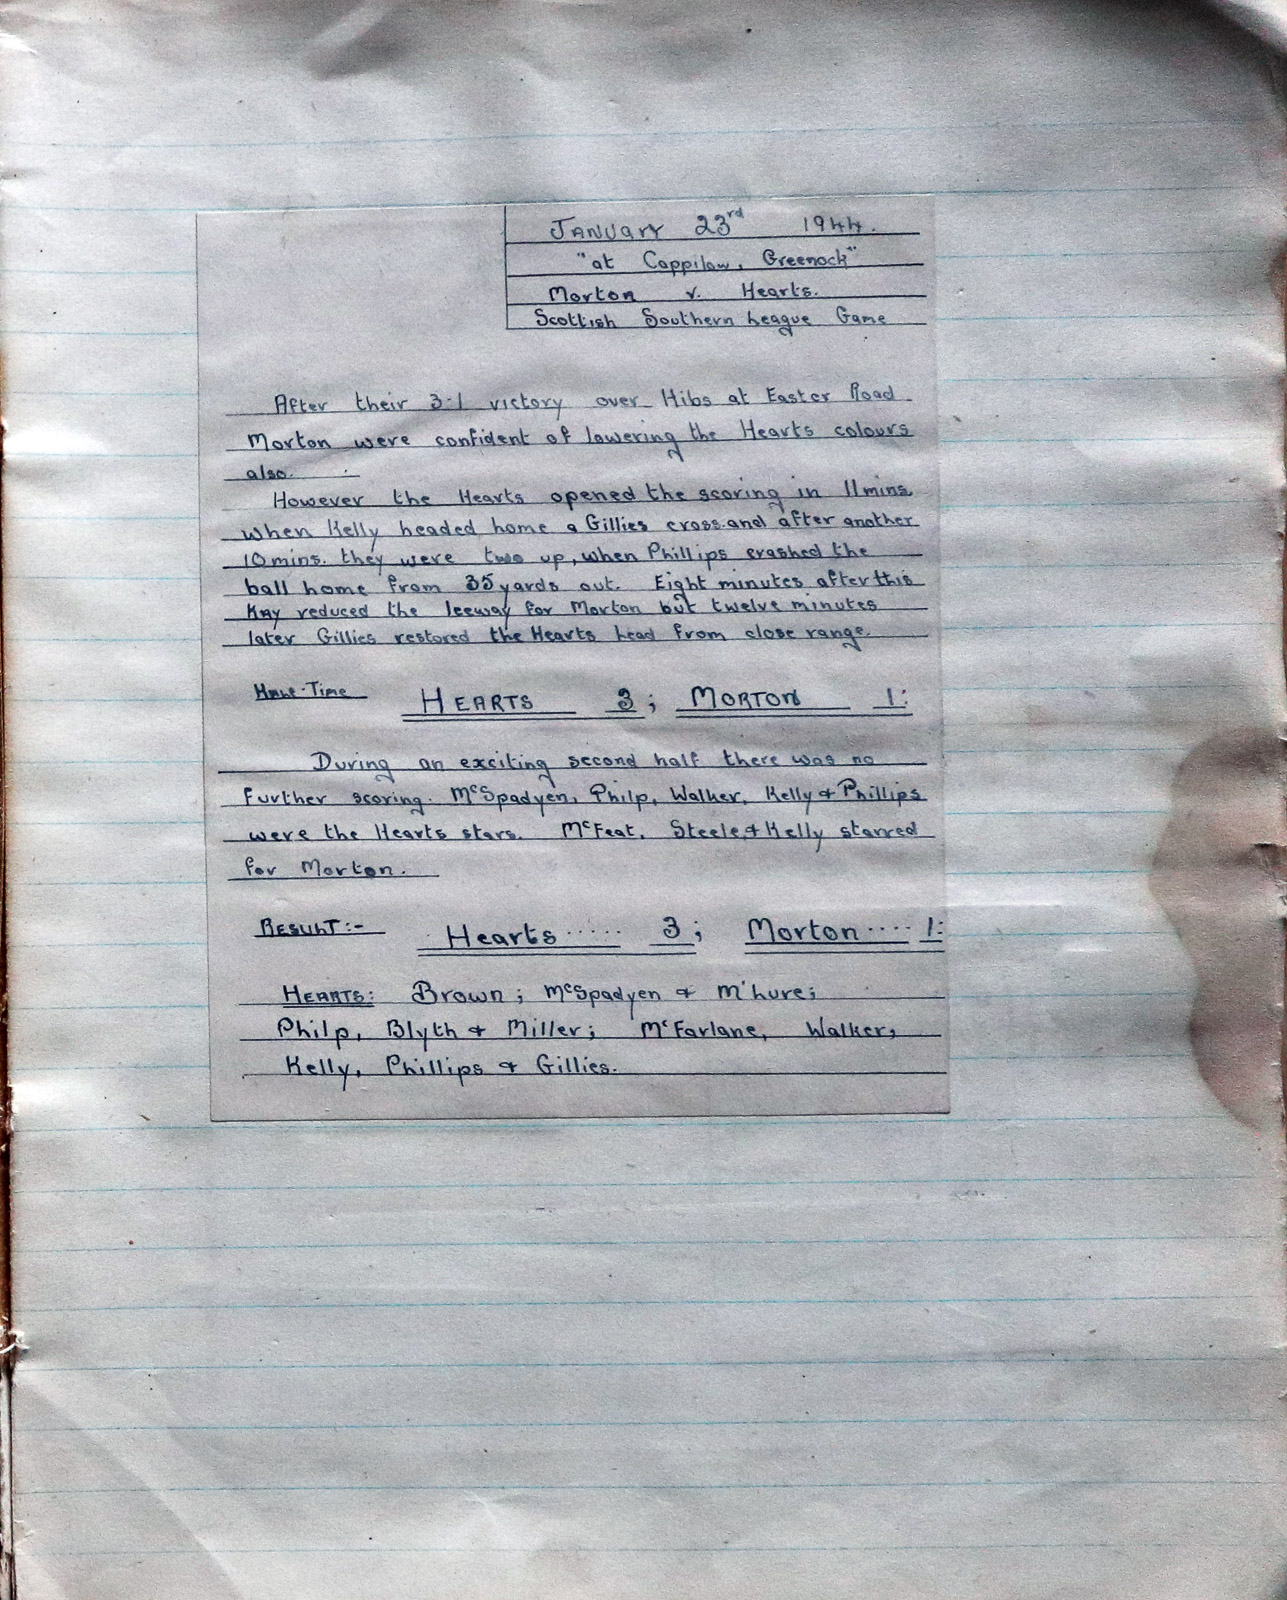 January 23rd 1944.
"at Cappilow, Greenock"
Morton v. Hearts.
Scottish Southern League Game
After their 3:1 victory over Hibs at Easter Road
Morton were confident of lowering the Hearts colours
also.
However the Hearts opened the scoring in 11 mins,
when Kelly headed home a Gillies cross and after another
10 mins. they were two up, when Phillips crashed the
ball home from 35 yards out. Eight minutes after this
Kay reduced the leeway for Morton but twelve minutes
later Gillies restored the Hearts lead from close range.
Half-Time HEARTS 3; MORTON 1:
During an exciting second half there was no
further scoring. McSpadyen, Philp, Walker, Kelly & Phillips
were the Hearts stars. McFeat, Steele & Kelly starred
for Morton.
RESULT:- Hearts ..... 3; Morton .... 1:
HEARTS: Brown; McSpadyen & M'Lure;
Philp, Blyth & Miller; McFarlane, Walker,
Kelly, Phillips & Gillies.